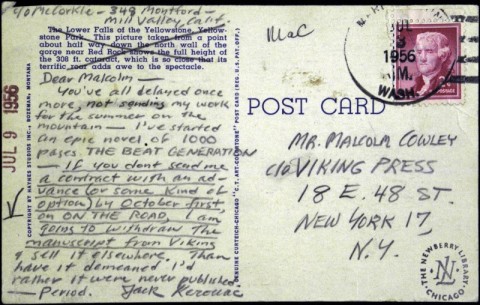 c/o McCorkle - 348 Montford -
Mill Valley, Calif.
The Lower Falls of the Yellowstone, Yellow-
stone Park. This picture taken from a point
about half way down the north wall of the
gorge near Red Rock shows the full height of
the 308 ft. cataract, which is so close that its
terrific roar adds awe to the spectacle.
Dear Malcolm —
You've all delayed once
more, not sending my work
for the summer on the
mountain — I've started
an epic novel of 1000
pages, THE BEAT GENERATION
If you dont send me
a contract with an ad-
vance (or some kind of
option) by October first,
on ON THE ROAD, I am
going to withdraw the
manuscript from Viking
& sell it elsewhere. Than
have it demeaned I'd
rather it were never published.
— Period. Jack Kerouac
JUL 9 1956
COPYRIGHT BY HAYNES STUDIOS INC., BOZEMAN, MONTANA
GENUINE CURTEICH-CHICAGO "C. T. ART-COLORTONE" POST CARD (REG. U. S. PAT. OFF.)
Mac
POST CARD
JUL
1956
WASH.
MR. MALCOLM COWLEY
c/o VIKING PRESS
18 E. 48 ST.
NEW YORK 17,
N.Y.
THE NEWBERRY LIBRARY
CHICAGO